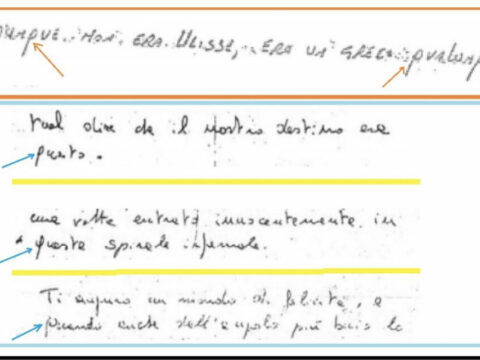 NON ERA ULISSE, ERA UN GRECO
vuol dire che il nostro destino era
questo.
una volta entrato innocentemente in
questa spirale infernale.
Ti auguro un mondo di felicità, e
quando anche dell'angolo più buio